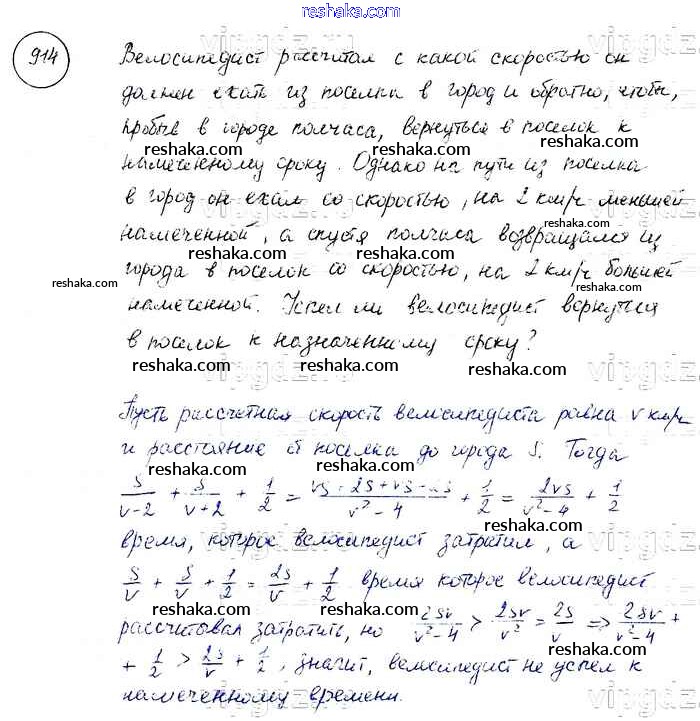 reshaka.com
914
Велосипедист рассчитал с какой скоростью он
должен ехать из поселка в город и обратно, чтобы,
reshaka.com
пробыв в городе полчаса, вернуться в поселок к
reshaka.com reshaka.com
намеченному сроку. Однако на пути из поселка
reshaka.com
в город он ехал со скоростью, на 2 км/ч меньшей
reshaka.com
намеченной, а спустя полчаса возвращался из
reshaka.com
города в поселок со скоростью, на 2 км/ч большей
reshaka.com reshaka.com
намеченной. Успел ли велосипедист вернуться
reshaka.com
в поселок к назначенному сроку?
reshaka.com reshaka.com
Пусть рассчетная скорость велосипедиста равна v км/ч
reshaka.com
и расстояние от поселка до города S. Тогда
reshaka.com
S/(v-2) + S/(v+2) + 1/2 = (vS-2S+vS-2S)/(v²-4) + 1/2 = 2vS/(v²-4) + 1/2
reshaka.com reshaka.com
время, которое велосипедист затратил, а
reshaka.com
S/v + S/v + 1/2 = 2S/v + 1/2 время которое велосипедист
reshaka.com reshaka.com
рассчитовал затратить, но 2Sv/(v²-4) > 2Sv/v² = 2S/v => 2Sv/(v²-4) +
reshaka.com
+ 1/2 > 2S/v + 1/2, значит, велосипедист не успел к
reshaka.com reshaka.com
намеченному времени.
reshaka.com
vipgdz.ru